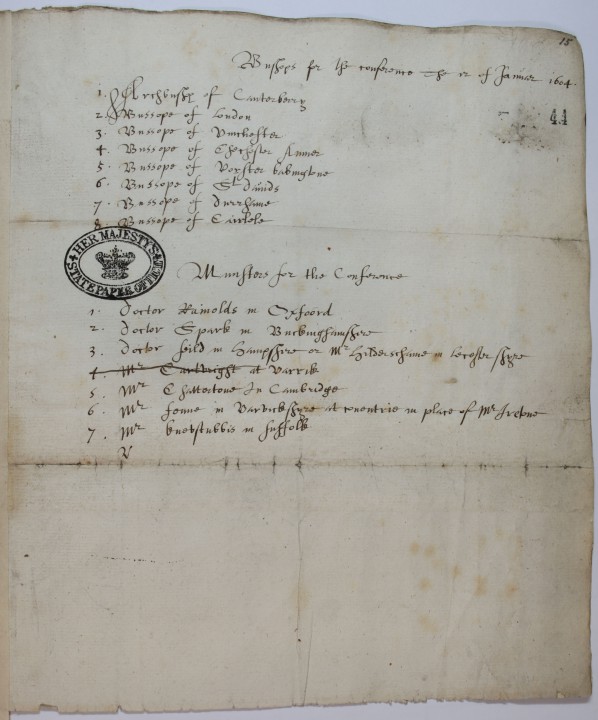 15
Bushops for the conference the 12 of Januar 1604.
44
1. Archbushp of Canterberry
2. Bussope of London
3. Bussope of Vinchester
4. Bussope of Chechester
5. Bussope of Vorster babingtone
6. Bussope of St Dauids
7. Bussope of Durrhame
8. Bussope of Carlele
HER MAJESTY'S STATE PAPER OFFICE
Ministers for the Conference
1. Doctor Rainolds in Oxfoord
2. Doctor Spark in Buckinghamshyre
3. Doctor feild in Hampshyre or Mr Hilderschame in lecester shyre
4. Mr Cartwright at Varrik
5. Mr Chattertone In Cambridge
6. Mr fenne in Varrickshyre at couentrie in place of Mr Iretone
7. Mr knewstubbis in suffolk